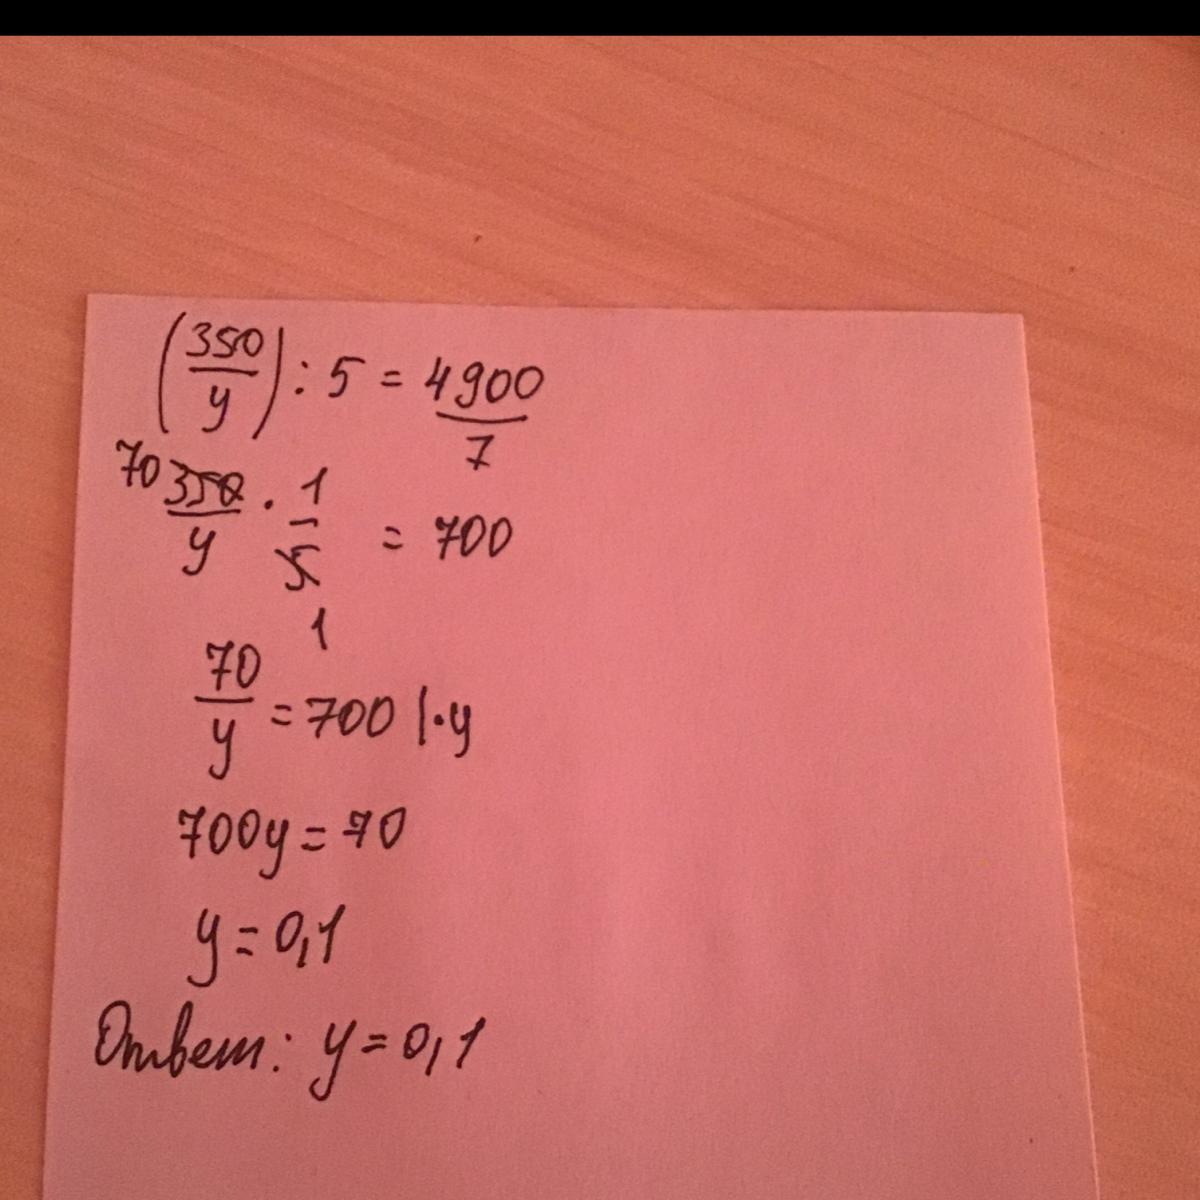 (350/y) : 5 = 4900/7
70 350/y · 1/5 1 = 700
70/y = 700 |·y
700y = 70
y = 0,1
Ответ: y = 0,1